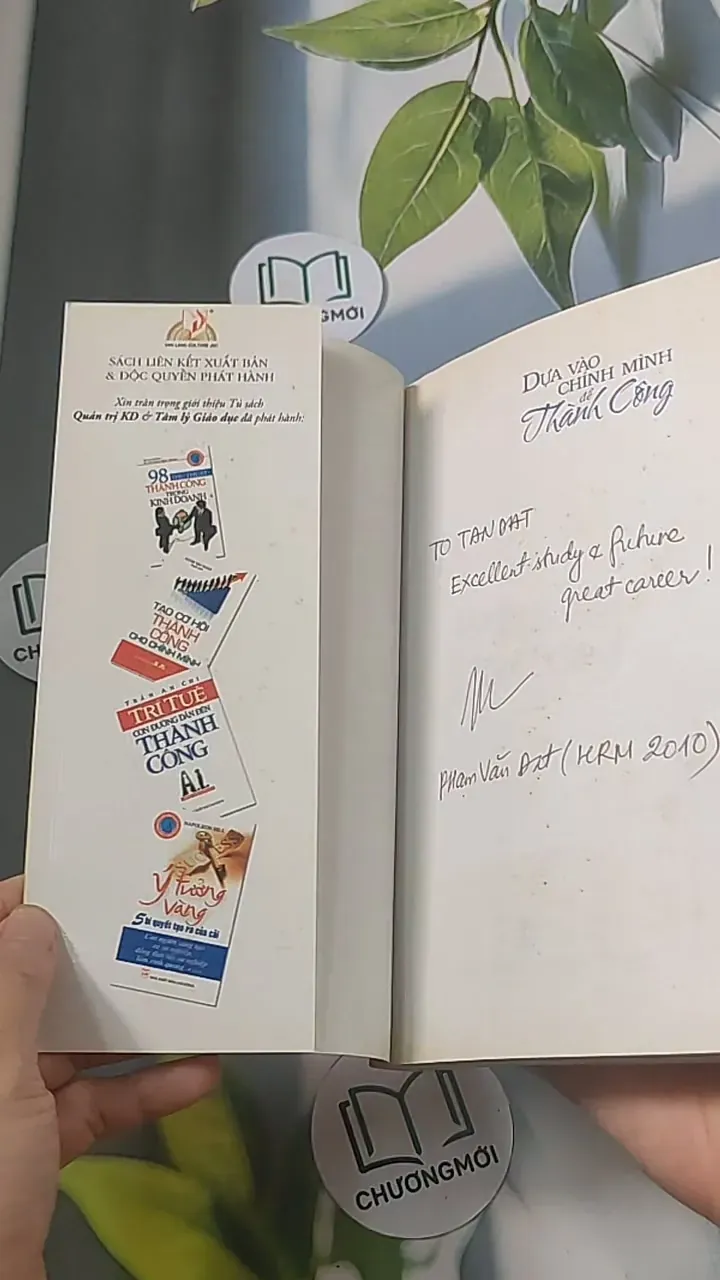 VAN LANG CULTURE JSC
SÁCH LIÊN KẾT XUẤT BẢN
& ĐỘC QUYỀN PHÁT HÀNH
Xin trân trọng giới thiệu Tủ sách
Quản trị KD & Tâm lý Giáo dục đã phát hành:
98
THÀNH CÔNG
TRONG
KINH DOANH
TẠO CƠ HỘI
THÀNH
CÔNG
CHO CHÍNH MÌNH
TRẦN AN CHI
TRÍ TUỆ
CON ĐƯỜNG DẪN ĐẾN
THÀNH
CÔNG
A1
NAPOLEON HILL
Ý tưởng
vàng
5 bí quyết tạo ra của cải
DỰA VÀO
CHÍNH MÌNH
để
Thành Công
TO TAN DAT
Excellent study & future
great career!
Phạm Văn Đạt (HRM 2010)
GMỚI
CH
CHƯƠNGMỚI